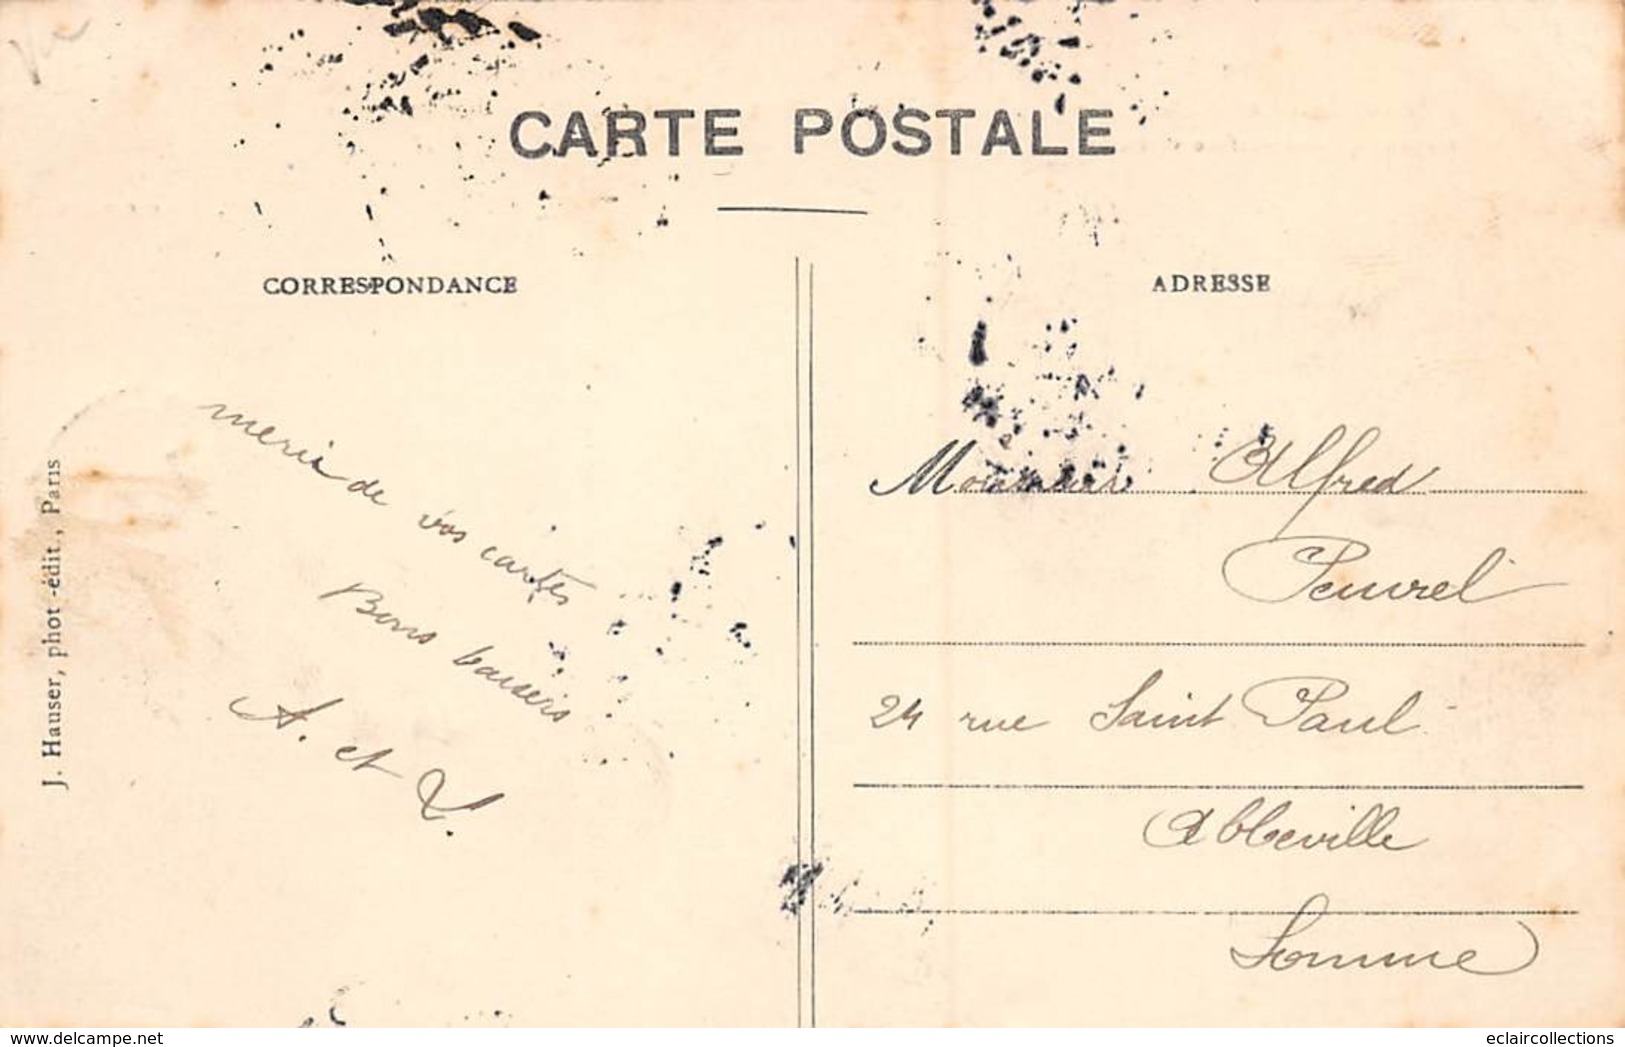 CARTE POSTALE
CORRESPONDANCE
ADRESSE
J. Hauser, phot.-édit., Paris
merci de vos cartes
Bons baisers
A. et V.
Monsieur Alfred
Peuvrel
24 rue Saint Paul
Abbeville
Somme
My.delcampe.net
eclaircollections